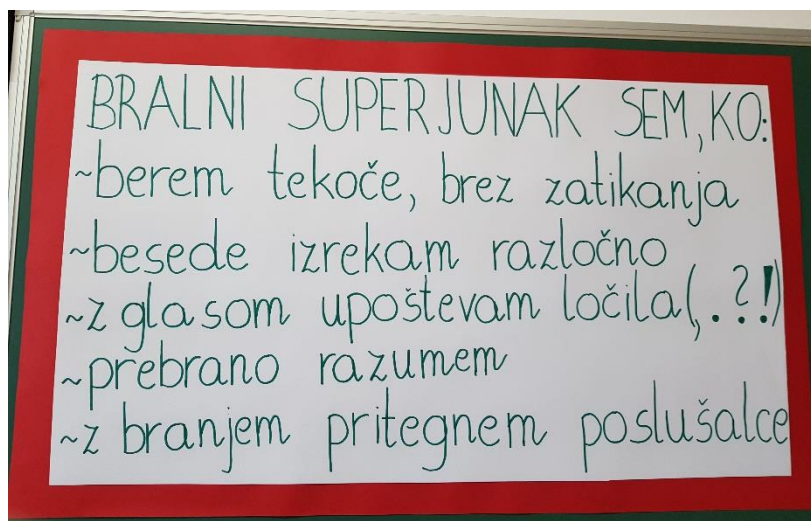 BRALNI SUPERJUNAK SEM, KO:
~berem tekoče, brez zatikanja
~besede izrekam razločno
~z glasom upoštevam ločila(,.?!)
~prebrano razumem
~z branjem pritegnem poslušalce